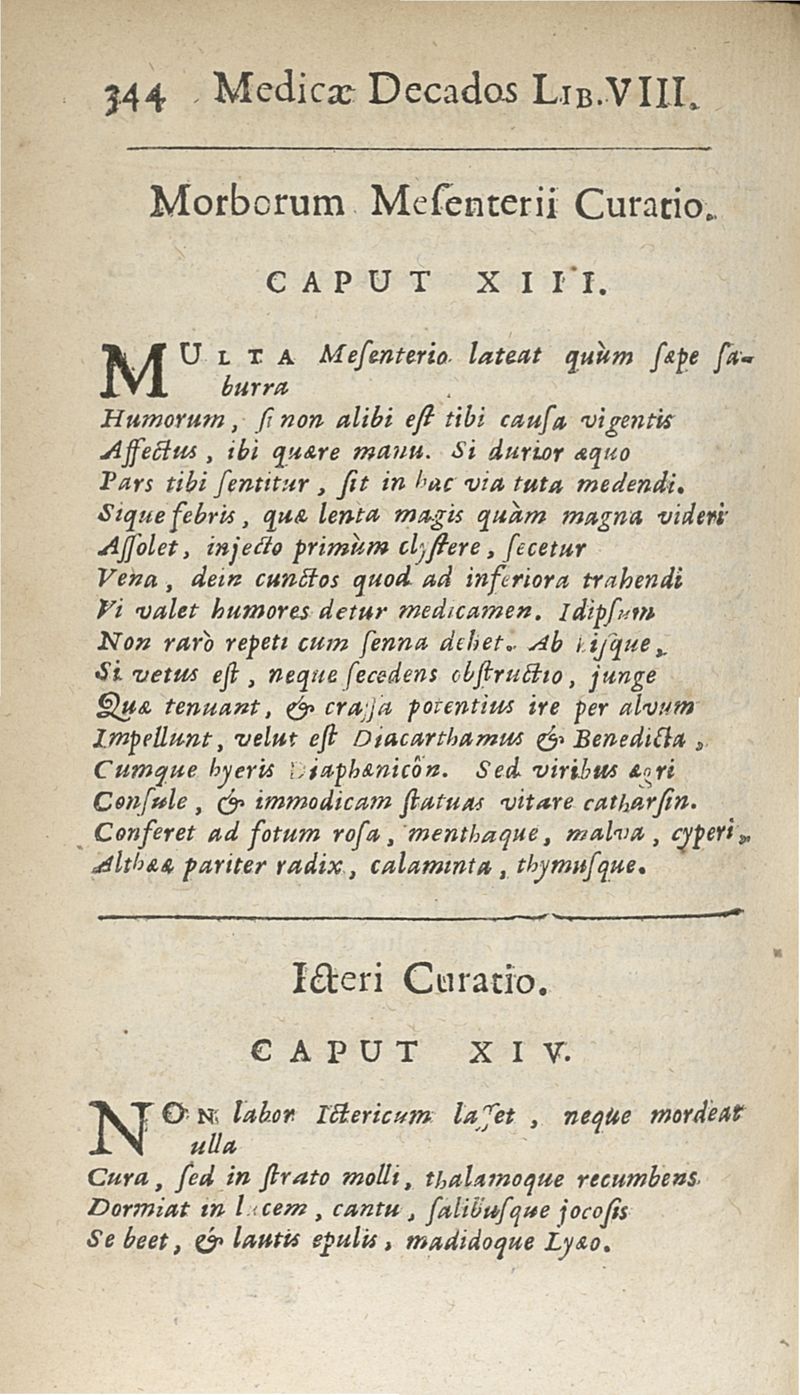 344 Medicæ Decados LIB. VIII.
Morborum Meſenterii Curatio.
CAPUT XIII.
MULTA Meſenterio lateat quùm ſæpe ſa-
burra
Humorum, ſi non alibi eſt tibi cauſa vigentis
Affectus, ibi quære manu. Si durior æquo
Pars tibi ſentitur, ſit in hac via tuta medendi.
Sique febris, quæ lenta magis quàm magna videri
Aſſolet, injecto primùm clyſtere, ſecetur
Vena, dein cunctos quod ad inferiora trahendi
Vi valet humores detur medicamen. Idipſum
Non rarò repeti cum ſenna debet. Ab hiſque,
Si vetus eſt, neque ſecedens obſtructio, junge
Quæ tenuant, & craſſa potentius ire per alvum
Impellunt, velut eſt Diacarthamus & Benedicta,
Cumque hyeris Diaphænicôn. Sed viribus ægri
Conſule, & immodicam ſtatuas vitare catharſin.
Conferet ad fotum roſa, menthaque, malva, cyperi,
Althææ pariter radix, calaminta, thymuſque.
Icteri Curatio.
CAPUT XIV.
NON labor Ictericum laſſet, neque mordeat
ulla
Cura, ſed in ſtrato molli, thalamoque recumbens
Dormiat in lucem, cantu, ſalibuſque jocoſis
Se beet, & lautis epulis, madidoque Lyæo.